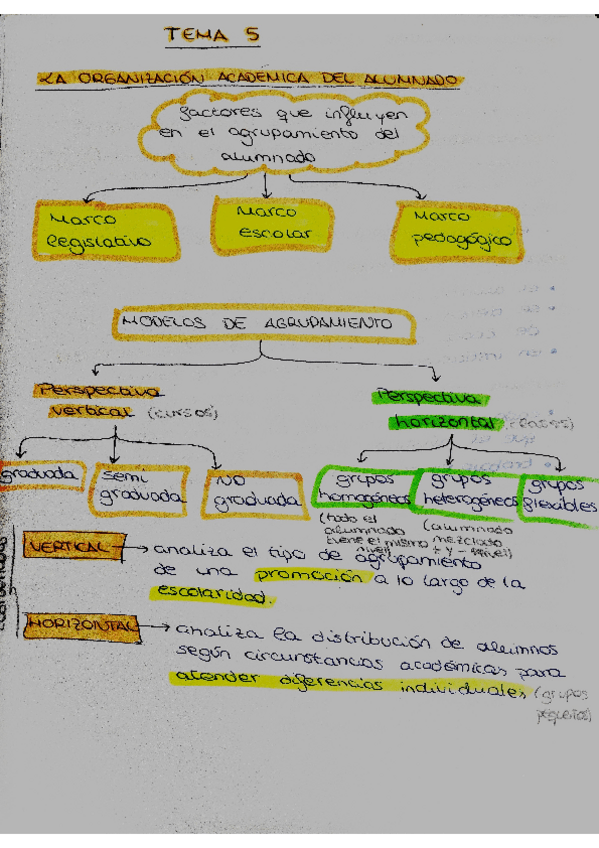 TEMA 5
LA ORGANIZACIÓN ACADEMICA DEL ALUMNADO
factores que influyen
en el agrupamiento del
alumnado
Marco
legislativo
Marco
escolar
Marco
pedagógico
MODELOS DE AGRUPAMIENTO
Perspectiva
vertical (cursos)
Perspectiva
horizontal (clases)
graduada
semi
graduada
NO
graduada
grupos
homogéneos
(todo el
alumnado
tiene el mismo
nivel)
grupos
heterogéneos
(alumnado
mezclado
+ y - nivel)
grupos
flexibles
VERTICAL → analiza el tipo de agrupamiento
de una promoción a lo largo de la
escolaridad.
HORIZONTAL → analiza la distribución de alumnos
según circunstancias académicas para
atender diferencias individuales (grupos
pequeños)